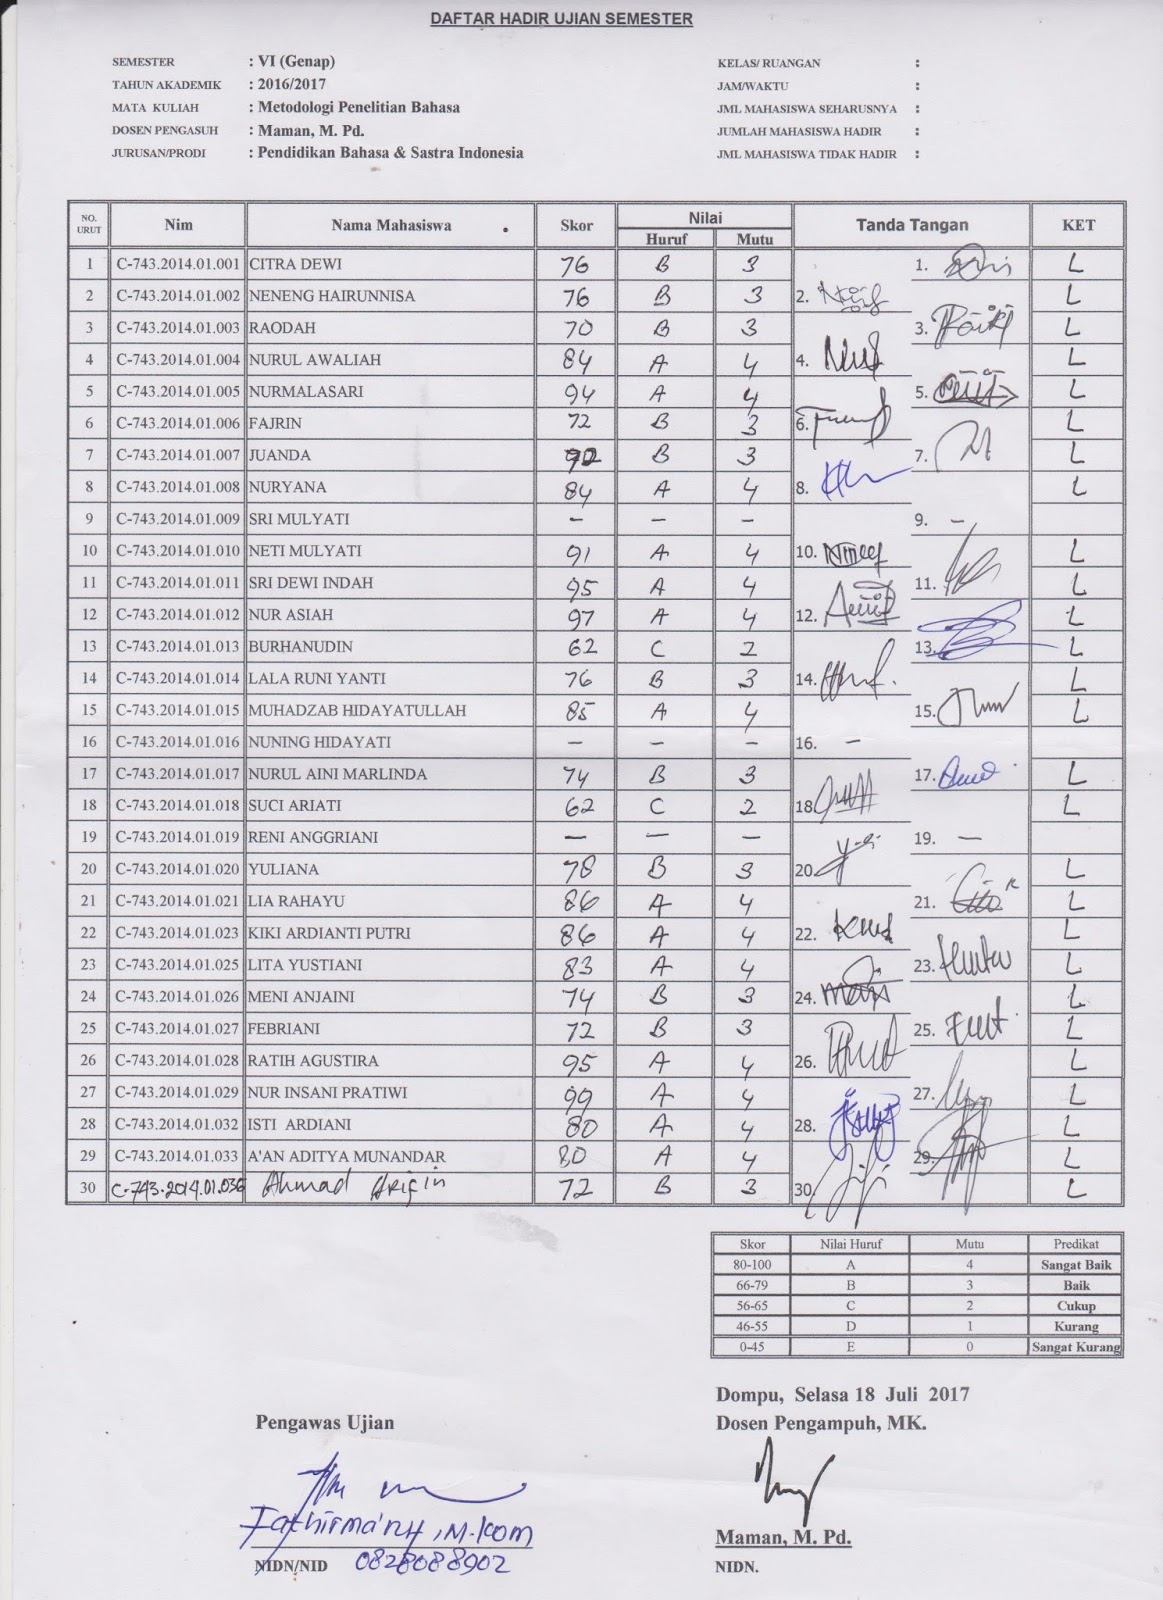 DAFTAR HADIR UJIAN SEMESTER
SEMESTER : VI (Genap) KELAS/ RUANGAN :
TAHUN AKADEMIK : 2016/2017 JAM/WAKTU :
MATA KULIAH : Metodologi Penelitian Bahasa JML MAHASISWA SEHARUSNYA :
DOSEN PENGASUH : Maman, M. Pd. JUMLAH MAHASISWA HADIR :
JURUSAN/PRODI : Pendidikan Bahasa & Sastra Indonesia JML MAHASISWA TIDAK HADIR :
NO. URUT Nim Nama Mahasiswa Skor Nilai Tanda Tangan KET
Huruf Mutu
1 C-743.2014.01.001 CITRA DEWI 76 B 3 1. L
2 C-743.2014.01.002 NENENG HAIRUNNISA 76 B 3 2. L
3 C-743.2014.01.003 RAODAH 70 B 3 3. L
4 C-743.2014.01.004 NURUL AWALIAH 84 A 4 4. L
5 C-743.2014.01.005 NURMALASARI 94 A 4 5. L
6 C-743.2014.01.006 FAJRIN 72 B 3 6. L
7 C-743.2014.01.007 JUANDA B 3 7. L
8 C-743.2014.01.008 NURYANA 84 A 4 8. L
9 C-743.2014.01.009 SRI MULYATI – – – 9. –
10 C-743.2014.01.010 NETI MULYATI 91 A 4 10. L
11 C-743.2014.01.011 SRI DEWI INDAH 95 A 4 11. L
12 C-743.2014.01.012 NUR ASIAH 97 A 4 12. L
13 C-743.2014.01.013 BURHANUDIN 62 C 2 13. L
14 C-743.2014.01.014 LALA RUNI YANTI 76 B 3 14. L
15 C-743.2014.01.015 MUHADZAB HIDAYATULLAH 85 A 4 15. L
16 C-743.2014.01.016 NUNING HIDAYATI – – – 16. –
17 C-743.2014.01.017 NURUL AINI MARLINDA 74 B 3 17. L
18 C-743.2014.01.018 SUCI ARIATI 62 C 2 18. L
19 C-743.2014.01.019 RENI ANGGRIANI – – – 19. –
20 C-743.2014.01.020 YULIANA 78 B 3 20. L
21 C-743.2014.01.021 LIA RAHAYU 86 A 4 21. L
22 C-743.2014.01.023 KIKI ARDIANTI PUTRI 86 A 4 22. L
23 C-743.2014.01.025 LITA YUSTIANI 83 A 4 23. L
24 C-743.2014.01.026 MENI ANJAINI 74 B 3 24. L
25 C-743.2014.01.027 FEBRIANI 72 B 3 25. L
26 C-743.2014.01.028 RATIH AGUSTIRA 95 A 4 26. L
27 C-743.2014.01.029 NUR INSANI PRATIWI 99 A 4 27. L
28 C-743.2014.01.032 ISTI ARDIANI 80 A 4 28. L
29 C-743.2014.01.033 A'AN ADITYA MUNANDAR 80 A 4 29. L
30 C-743.2014.01.036 Ahmad Arifin 72 B 3 30. L
Skor Nilai Huruf Mutu Predikat
80-100 A 4 Sangat Baik
66-79 B 3 Baik
56-65 C 2 Cukup
46-55 D 1 Kurang
0-45 E 0 Sangat Kurang
Dompu, Selasa 18 Juli 2017
Pengawas Ujian Dosen Pengampuh, MK.
Fathirma'ruf, M.Kom
Maman, M. Pd.
NIDN/NID 0828088902 NIDN.